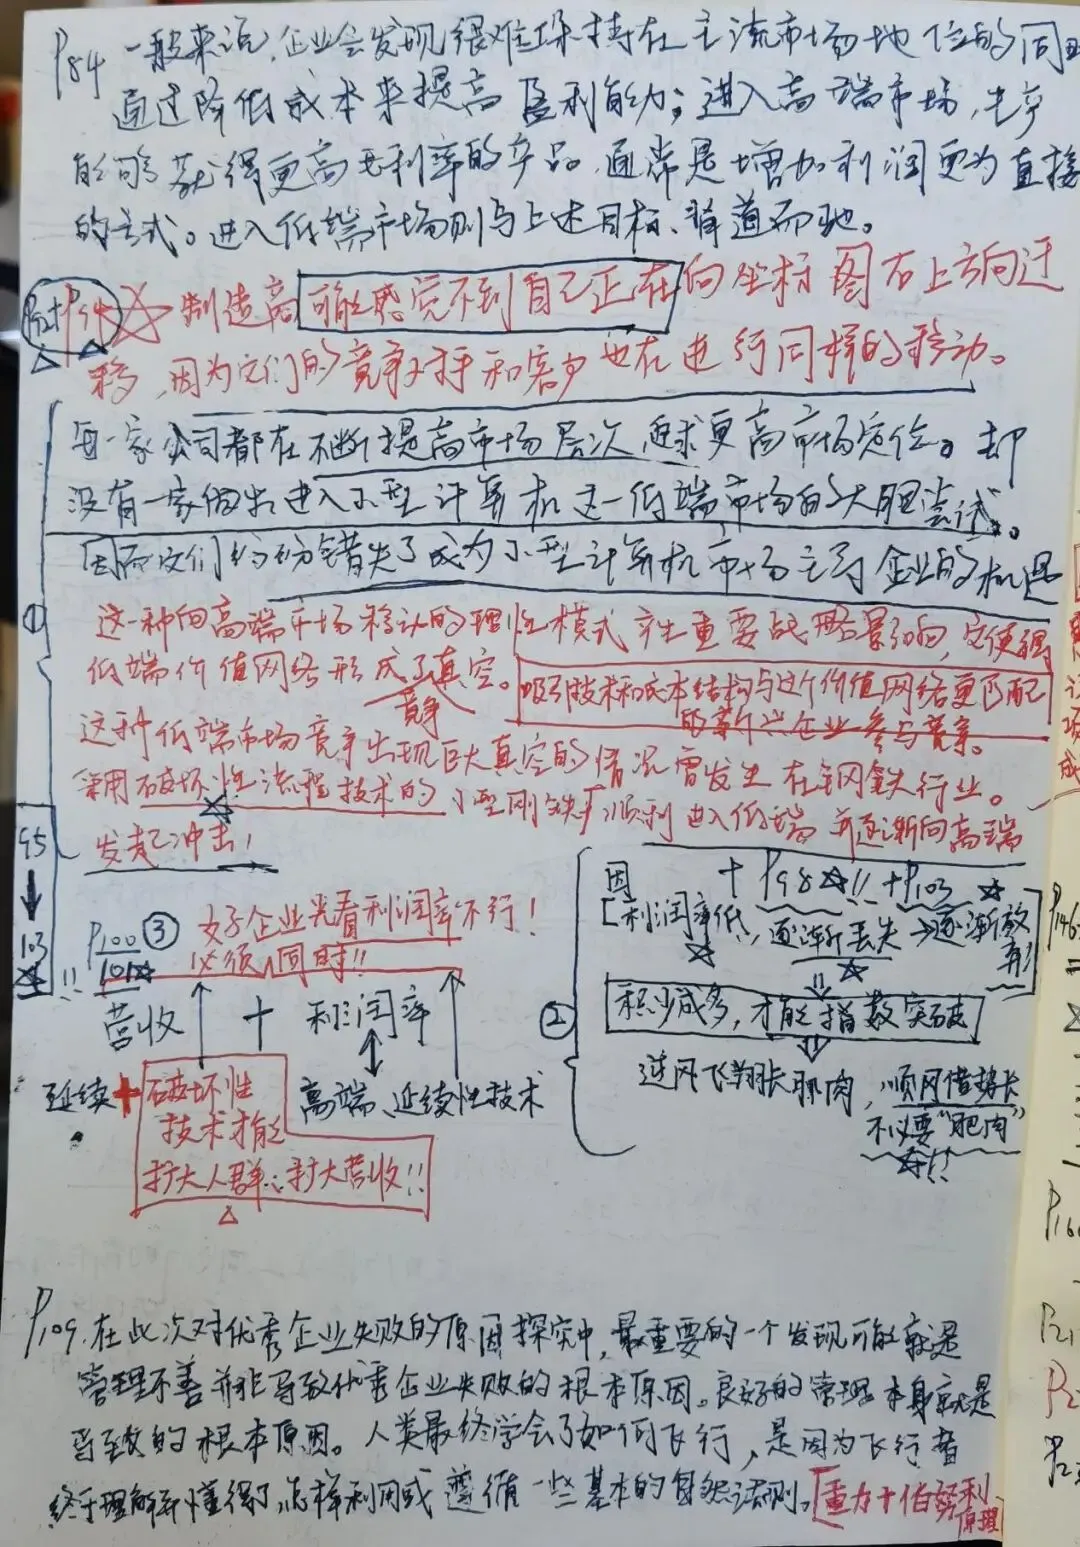 P84 一般来说，企业会发现很难在保持在主流市场地位的同时
通过降低成本来提高盈利能力；进入高端市场，生产
能够获得更高毛利率的产品，通常是增加利润更为直接
的方式。进入低端市场则与上述目标背道而驰。
P92+P94 制造商可能感觉不到自己正在向坐标图右上方向迁
移，因为它们的竞争对手和客户也在进行同样的移动。
每一家公司都在不断提高市场层次，追求更高市场定位。却
没有一家做出进入小型计算机这一低端市场的大胆尝试。
因而它们纷纷错失了成为小型计算机市场主导企业的机遇
① 这一种向高端市场移动的理性模式产生重要战略影响，它使得
低端价值网络形成了竞争真空。吸引技术和成本结构与这个价值网络更匹配
的新兴企业参与竞争。
这种低端市场竞争出现巨大真空的情况曾发生在钢铁行业。
采用破坏性流程技术的小型钢铁厂顺利进入低端并逐渐向高端
发起冲击！
95
103
P100 ③ 好企业光看利润率不行！
101 必须同时!!
营收 + 利润率
延续+破坏性
技术才能
扩大人群∴扩大营收!!
高端、延续性技术
② 因 + P98 !! + P103
利润率低，逐渐丢失→逐渐放弃
积少成多，才能指数突破
逆风飞翔长肌肉，顺风借势长
不必要“肥肉”
!!
P109. 在此次对优秀企业失败的原因探究中，最重要的一个发现可能就是
管理不善并非导致优秀企业失败的根本原因。良好的管理本身就是
导致的根本原因。人类最终学会了如何飞行，是因为飞行者
终于理解并懂得了怎样利用或遵循一些基本的自然法则。[重力+伯努利
原理]
P146
P160
P21